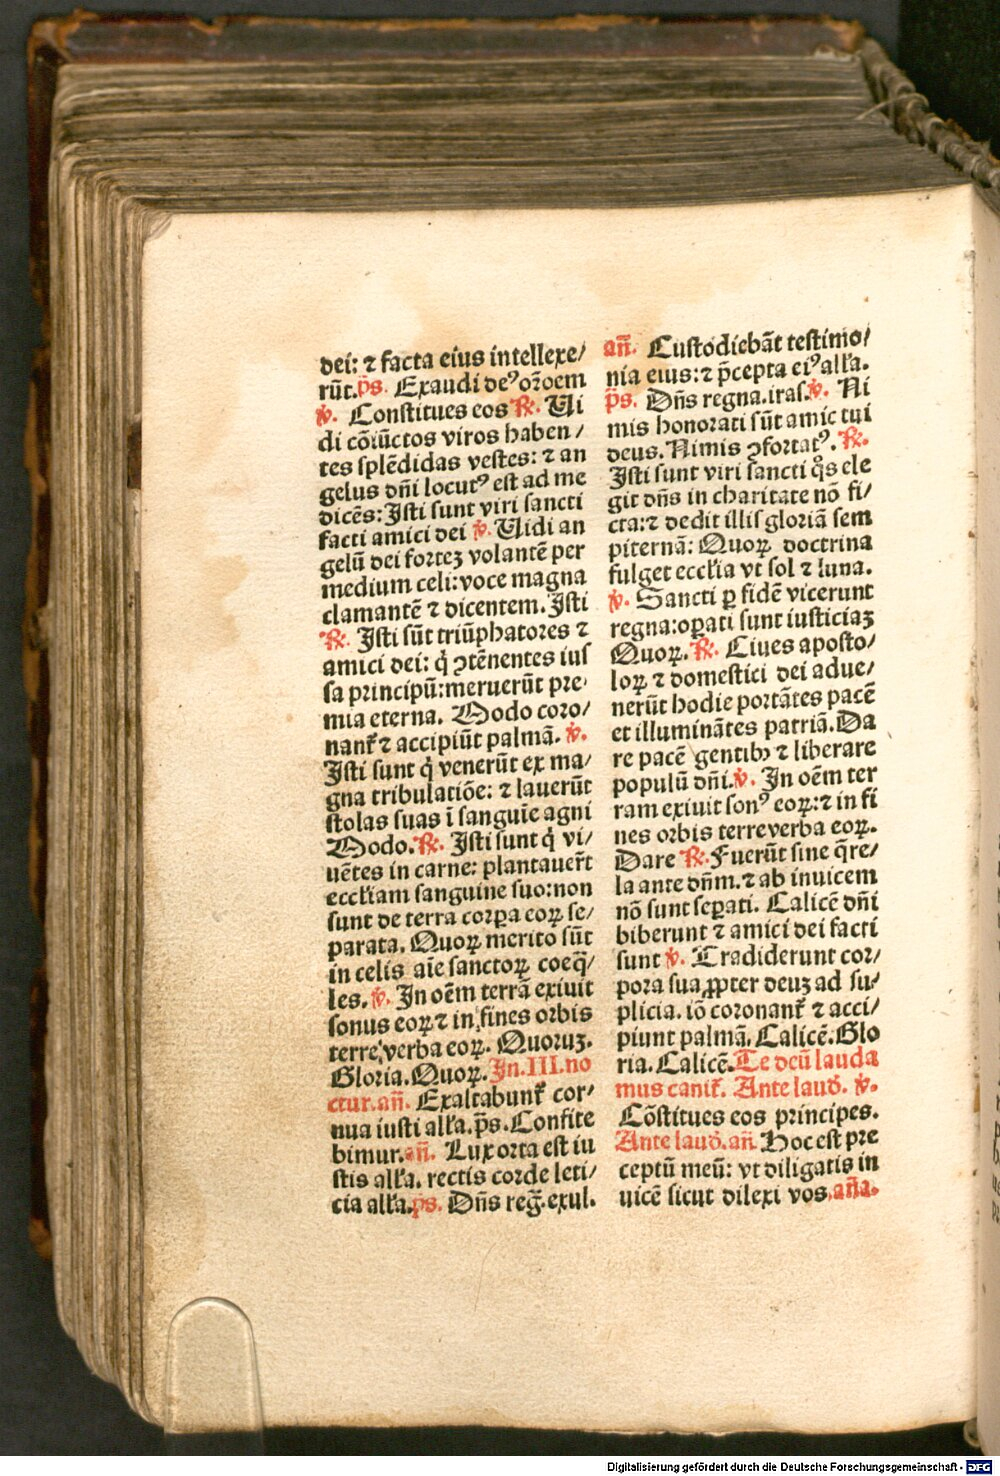 dei: ⁊ facta eius intellexe/
rūt. p̄s. Exaudi deꝰ or̄oem
℣. Constitues eos ℟. Ui
di cōiūctos viros haben/
tes splēdidas vestes: ⁊ an
gelus dn̄i locutꝰ est ad me
dicēs: Isti sunt viri sancti
facti amici dei ℣. Uidi an
gelū dei fortez volantē per
medium celi: voce magna
clamantē ⁊ dicentem. Isti
℟. Isti sūt triūphatores ⁊
amici dei: q̇ ꝯtēnentes ius
sa principū: meruerūt pre/
mia eterna. Modo coro/
nant᷑ ⁊ accipiūt palmā. ℣.
Isti sunt q̇ venerūt ex ma/
gna tribulatiōe: ⁊ lauerūt
stolas suas ī sanguīe agni
Modo. ℟. Isti sunt q̇ vi/
uētes in carne: plantauer̄t
eccłiam sanguine suo: non
sunt de terra corꝑa eoꝝ se/
parata. Quoꝝ merito sūt
in celis aīe sanctoꝝ coeq̄/
les. ℣. In oēm terrā exiuit
sonus eoꝝ ⁊ in fines orbis
terre, verba eoꝝ. Quoruz.
Gloria. Quoꝝ. In. III. no
ctur. an̄. Exaltabunt᷑ cor/
nua iusti ałła. p̄s. Confite
bimur. an̄. Lux orta est iu
stis ałła. rectis corde leti/
cia ałła. p̄s. Dn̄s reḡ. exul.
an̄. Custodiebāt testimo/
nia eius: ⁊ p̄cepta eiꝰ ałła.
p̄s. Dn̄s regna. iras. ℣. Ni
mis honorati sūt amic tui
deus. Nimis ꝯfortatꝰ. ℟.
Isti sunt viri sancti q̊s ele
git dn̄s in charitate nō fi/
cta: ⁊ dedit illis gloriā sem
piternā: Quoꝝ doctrina
fulget eccłia vt sol ⁊ luna.
℣. Sancti ꝑ fidē vicerunt
regna: oꝑati sunt iusticiaz
Quoꝝ. ℟. Ciues aposto/
loꝝ ⁊ domestici dei adue/
nerūt hodie portātes pacē
et illuminātes patriā. Da
re pacē gentibꝫ ⁊ liberare
populū dn̄i. ℣. In oēm ter
ram exiuit sonꝰ eoꝝ: ⁊ in fi
nes orbis terre verba eoꝝ.
Dare ℟. Fuerūt sine q̄re/
la ante dn̄m. ⁊ ab inuicem
nō sunt seꝑati. Calicē dn̄i
biberunt ⁊ amici dei facti
sunt ℣. Tradiderunt cor/
pora sua ꝓpter deuz ad su/
plicia. iō coronant᷑ ⁊ acci/
piunt palmā. Calicē. Glo
ria. Calicē. Te deū lauda
mus canit᷑. Ante laud̄. ℣.
Cōstitues eos principes.
Ante laud̄. an̄. Hoc est pre
ceptū meū: vt diligatis in
uicē sicut dilexi vos. an̄a.
Digitalisierung gefördert durch die Deutsche Forschungsgemeinschaft - DFG